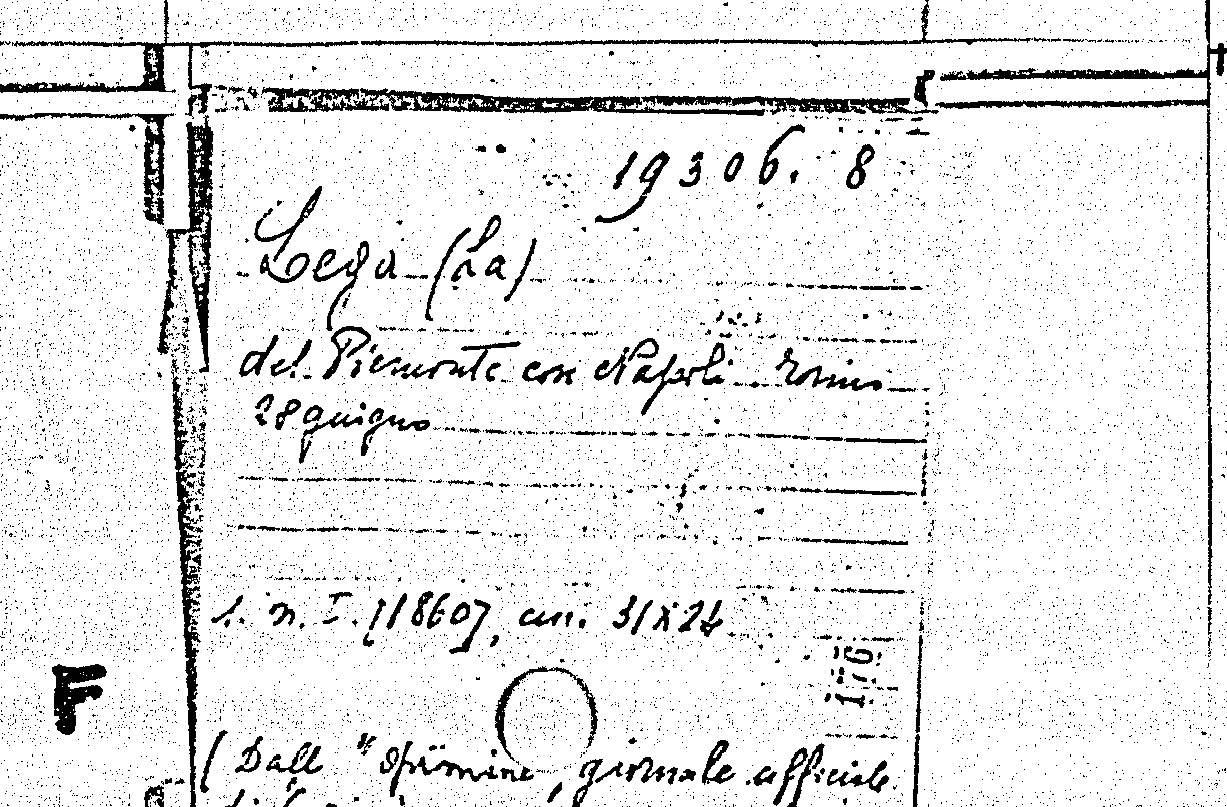 19306. 8
Lega (La)
del Piemonte con Napoli. Torino
28 giugno
s. n. T. [1860], cm. 31x24
176
F
( Dall' "Opinione", giornale officiale